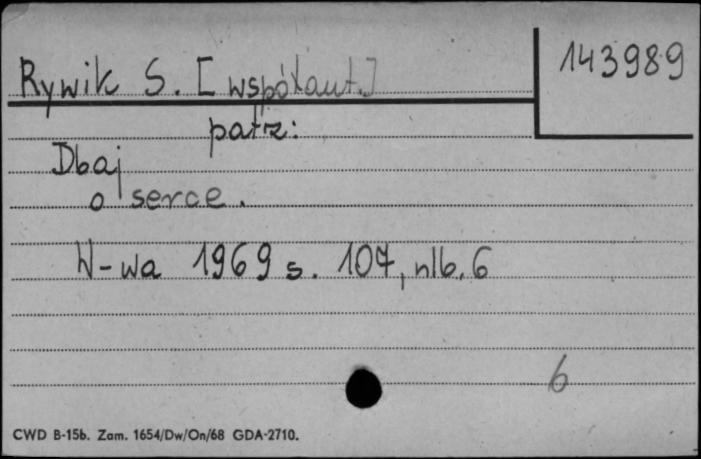 143989
Rywik S. [współaut.]
patrz:
Dbaj
o serce.
W-wa 1969 s. 107, nlb. 6
6
CWD B-15b. Zam. 1654/Dw/On/68 GDA-2710.